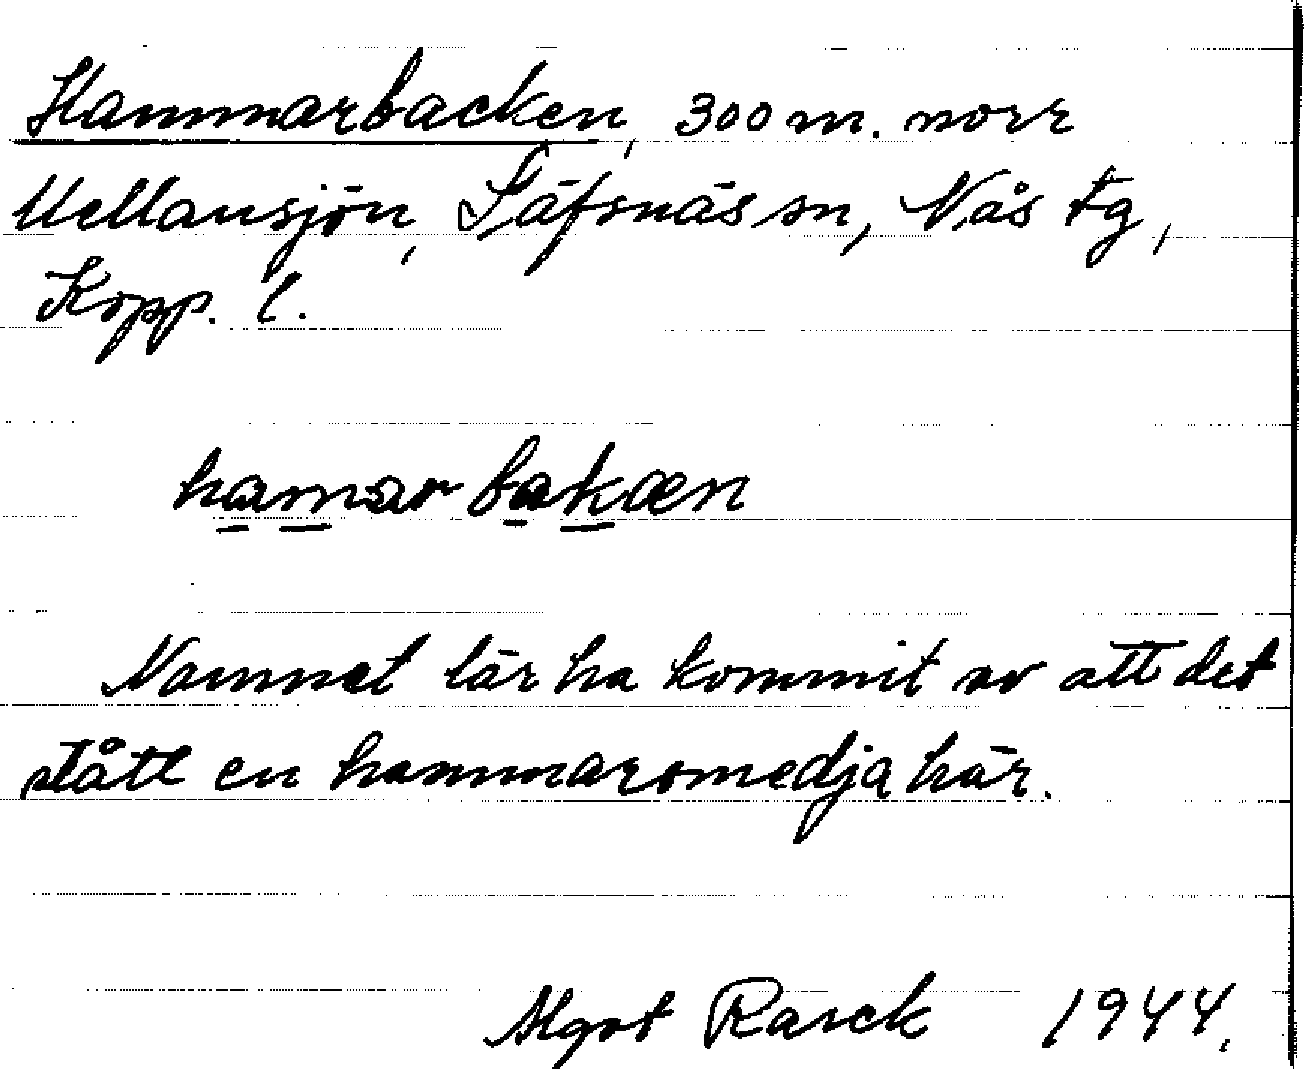 Hammarbacken, 300 m. norr
Mellansjön, Säfsnäs sn, Nås tg,
Kopp. l.
hamarbakæn
Namnet lär ha kommit av att det
stått en hammarsmedja här.
Algot Rasck 1944.